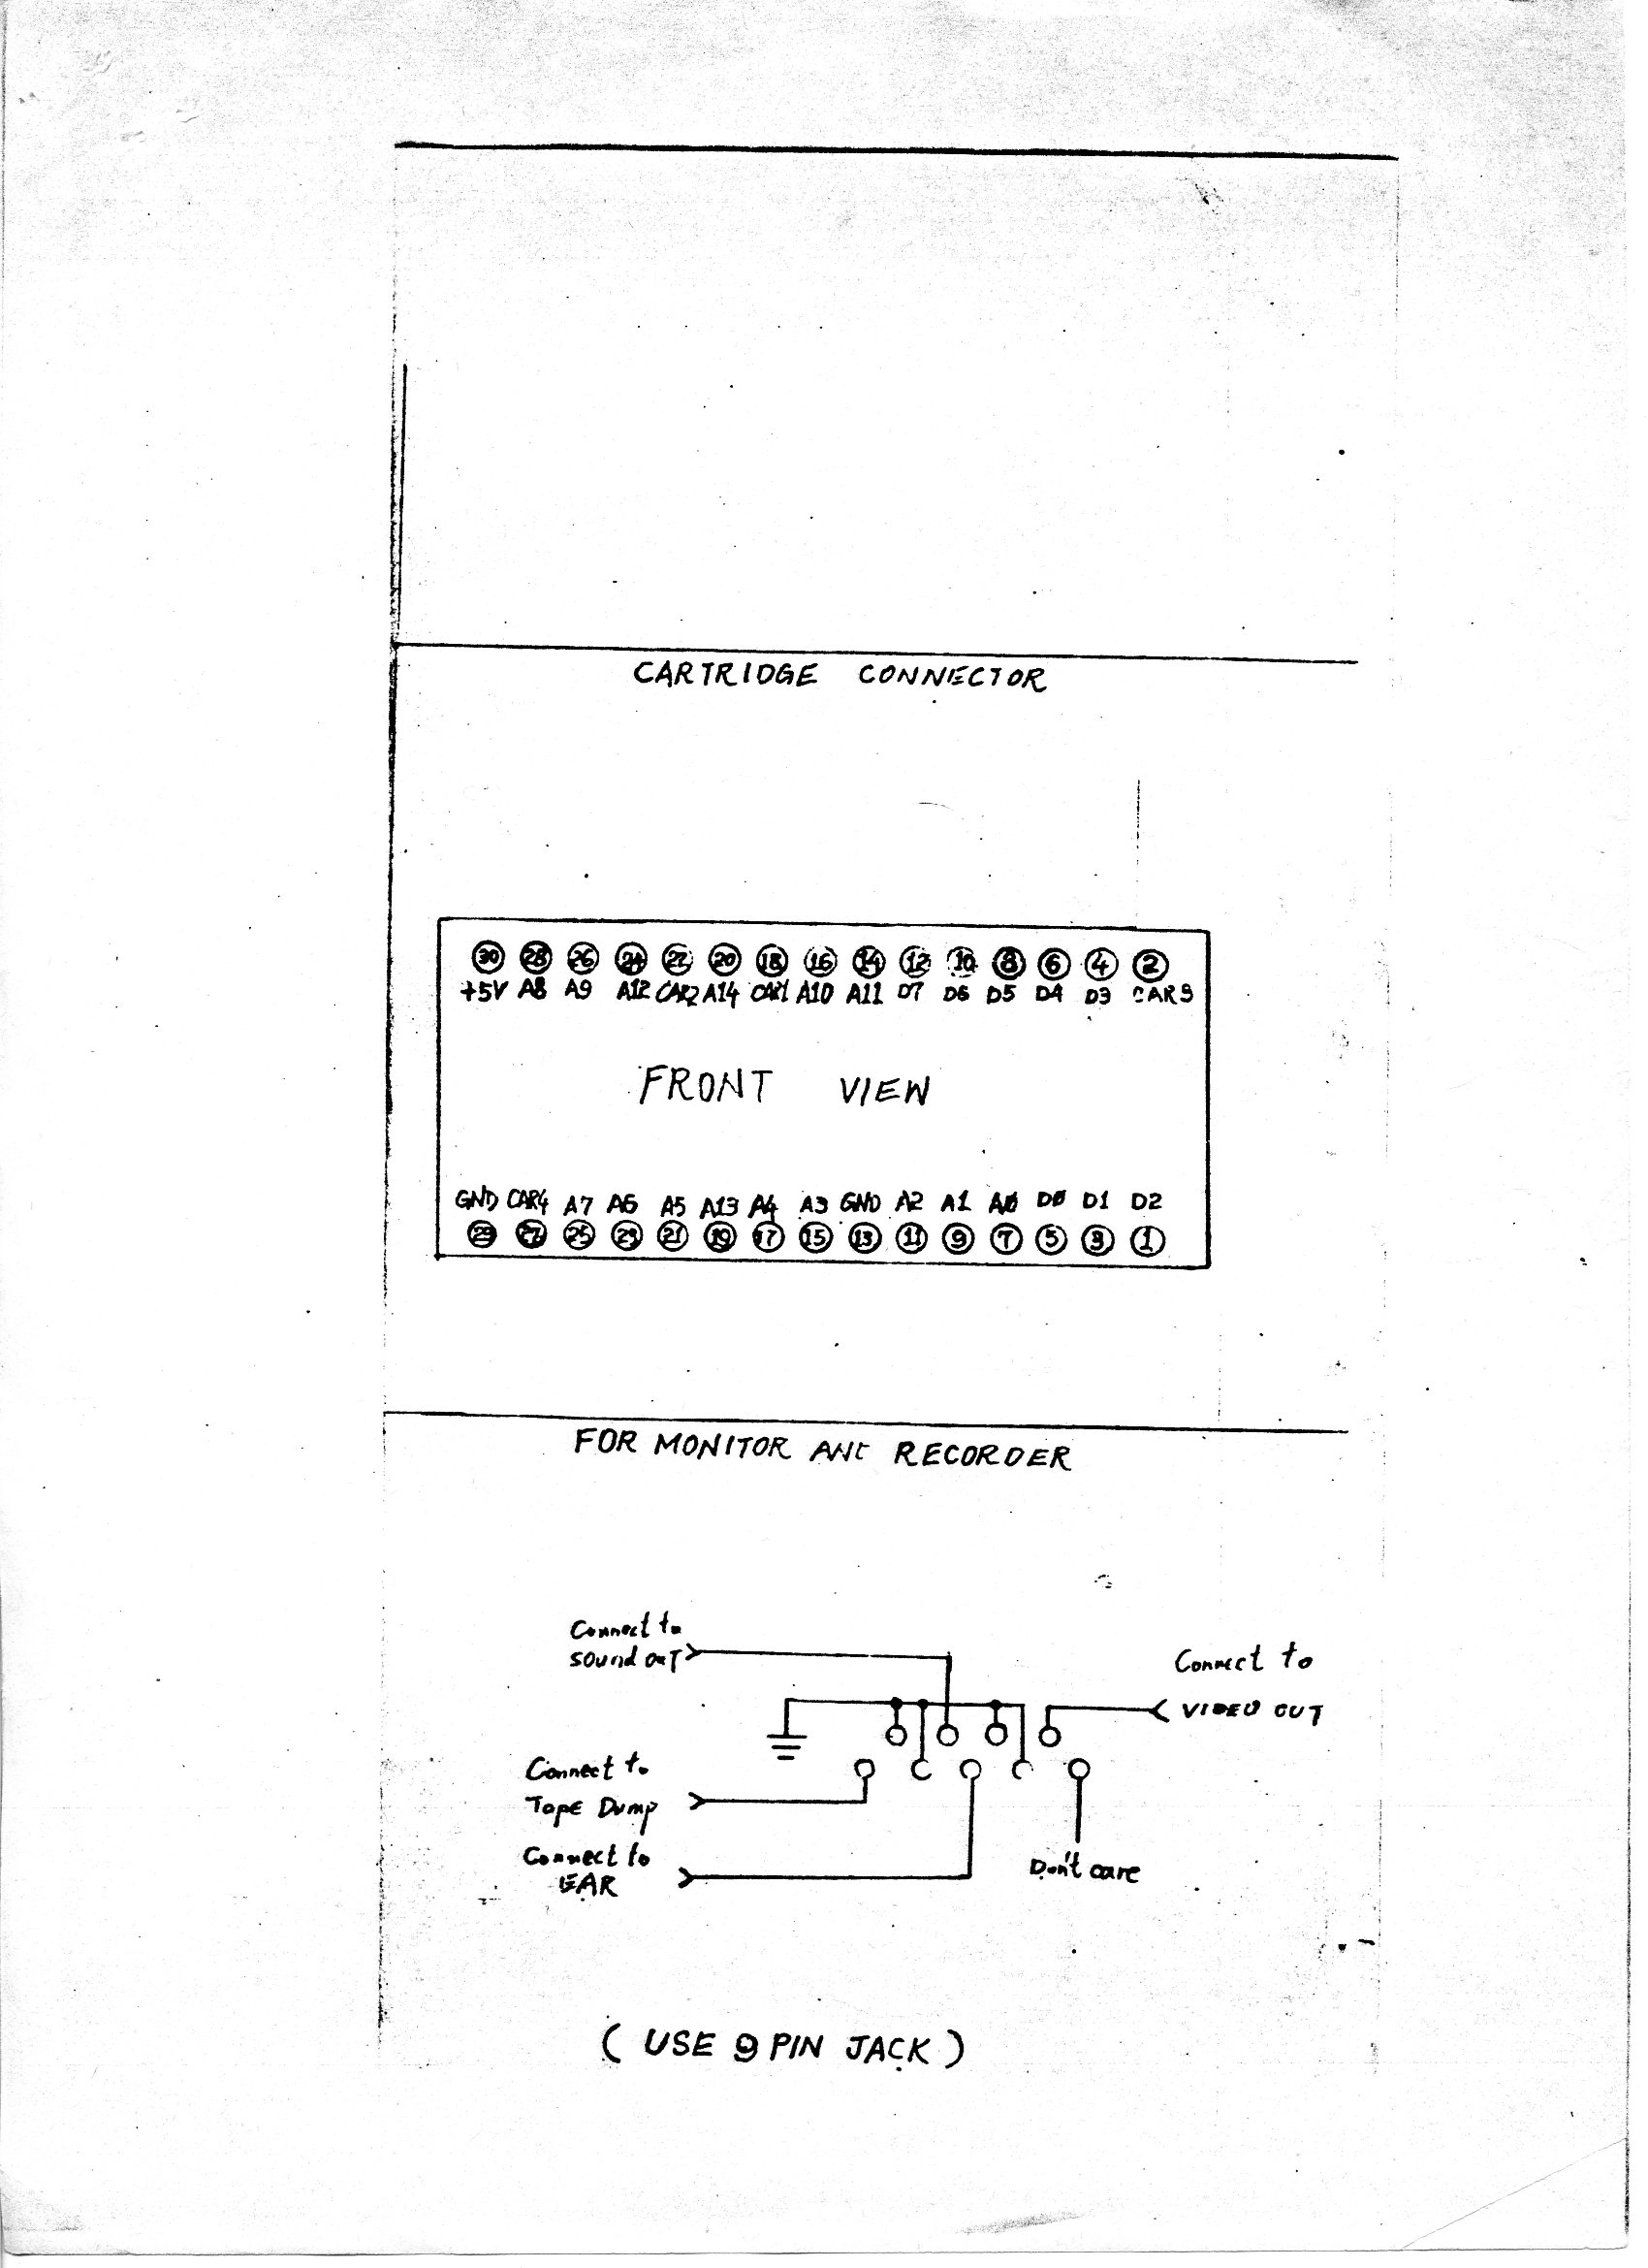 CARTRIDGE CONNECTOR
30 28 26 24 22 20 18 16 14 12 10 8 6 4 2
+5V A8 A9 A12 CAR2 A14 CAR1 A10 A11 D7 D6 D5 D4 D3 CAR3
FRONT VIEW
GND CAR4 A7 A6 A5 A13 A4 A3 GND A2 A1 A0 D0 D1 D2
29 27 25 23 21 19 17 15 13 11 9 7 5 3 1
FOR MONITOR AND RECORDER
Connect to
SOUND OUT
Connect to
VIDEO OUT
Connect to
Tape Dump
Connect to
EAR
Don't care
( USE 9 PIN JACK )